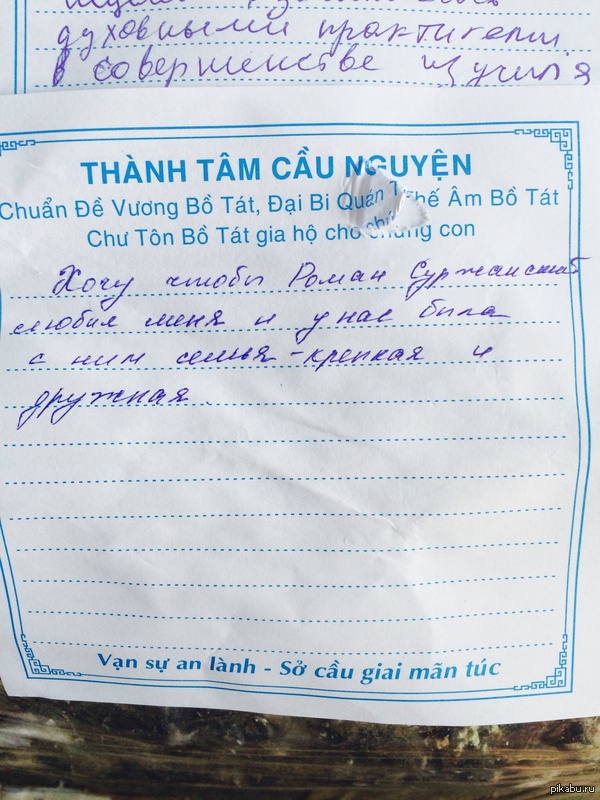 духовными практиками
в совершенстве изучил
THÀNH TÂM CẦU NGUYỆN
Chuẩn Đề Vương Bồ Tát, Đại Bi Quán Thế Âm Bồ Tát
Chư Tôn Bồ Tát gia hộ cho chúng con
Хочу чтобы Роман
любил меня и у нас была
с ним семья - крепкая и
дружная.
Vạn sự an lành - Sở cầu giai mãn túc
pikabu.ru